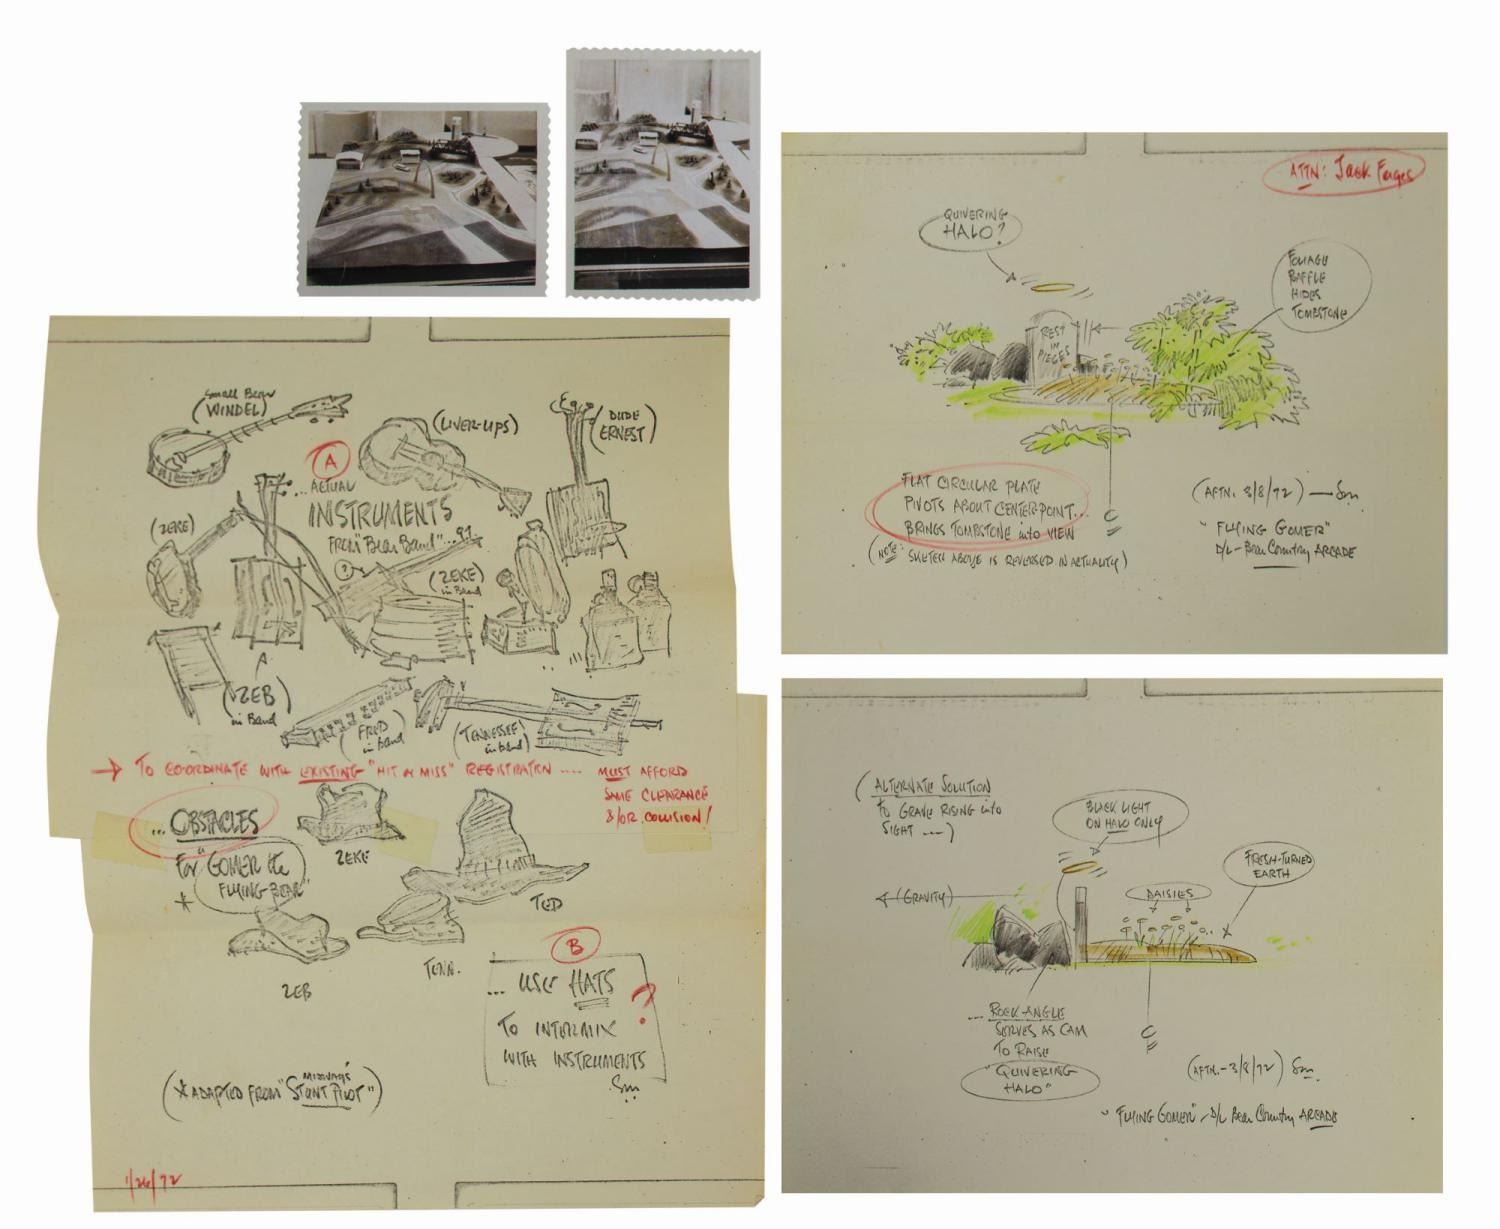 Small Bear
(WINDEL)
(LIVER-LIPS)
(DUDE
ERNEST)
A
... ACTUAL
INSTRUMENTS
FROM "Bear Band"...
(ZEKE)
?
(ZEKE)
in Band
(ZEB)
in Band
(FRED
in band)
(TENNESSEE
in band)
→ TO CO-ORDINATE WITH EXISTING "HIT or MISS" REGISTRATION .... MUST AFFORD
SAME CLEARANCE
&/OR COLLISION!
... OBSTACLES
For "GOMER the
FLYING-BEAR"
*
ZEKE
TED
TENN.
ZEB
B
... USE HATS
TO INTERMIX
WITH INSTRUMENTS
?
Sm
(* ADAPTED FROM MIDWAY'S "STUNT PILOT")
1/26/72
ATTN: Jack Ferges
QUIVERING
HALO?
FOLIAGE
BAFFLE
HIDES
TOMBSTONE
REST
IN
PIECES
FLAT CIRCULAR PLATE
PIVOTS ABOUT CENTERPOINT...
BRINGS TOMBSTONE into VIEW
(NOTE: SKETCH ABOVE IS REVERSED IN ACTUALITY)
(AFTN. 3/8/72) — Sm
"FLYING GOMER"
D/L - Bear Country ARCADE
(ALTERNATE SOLUTION
TO GRAVE RISING into
SIGHT ....)
BLACK LIGHT
ON HALO ONLY
FRESH-TURNED
EARTH
(GRAVITY)
DAISIES
... ROCK ANGLE
SERVES AS CAM
TO RAISE
"QUIVERING
HALO"
(AFTN. - 3/8/72) Sm
"FLYING GOMER" - D/L Bear Country ARCADE